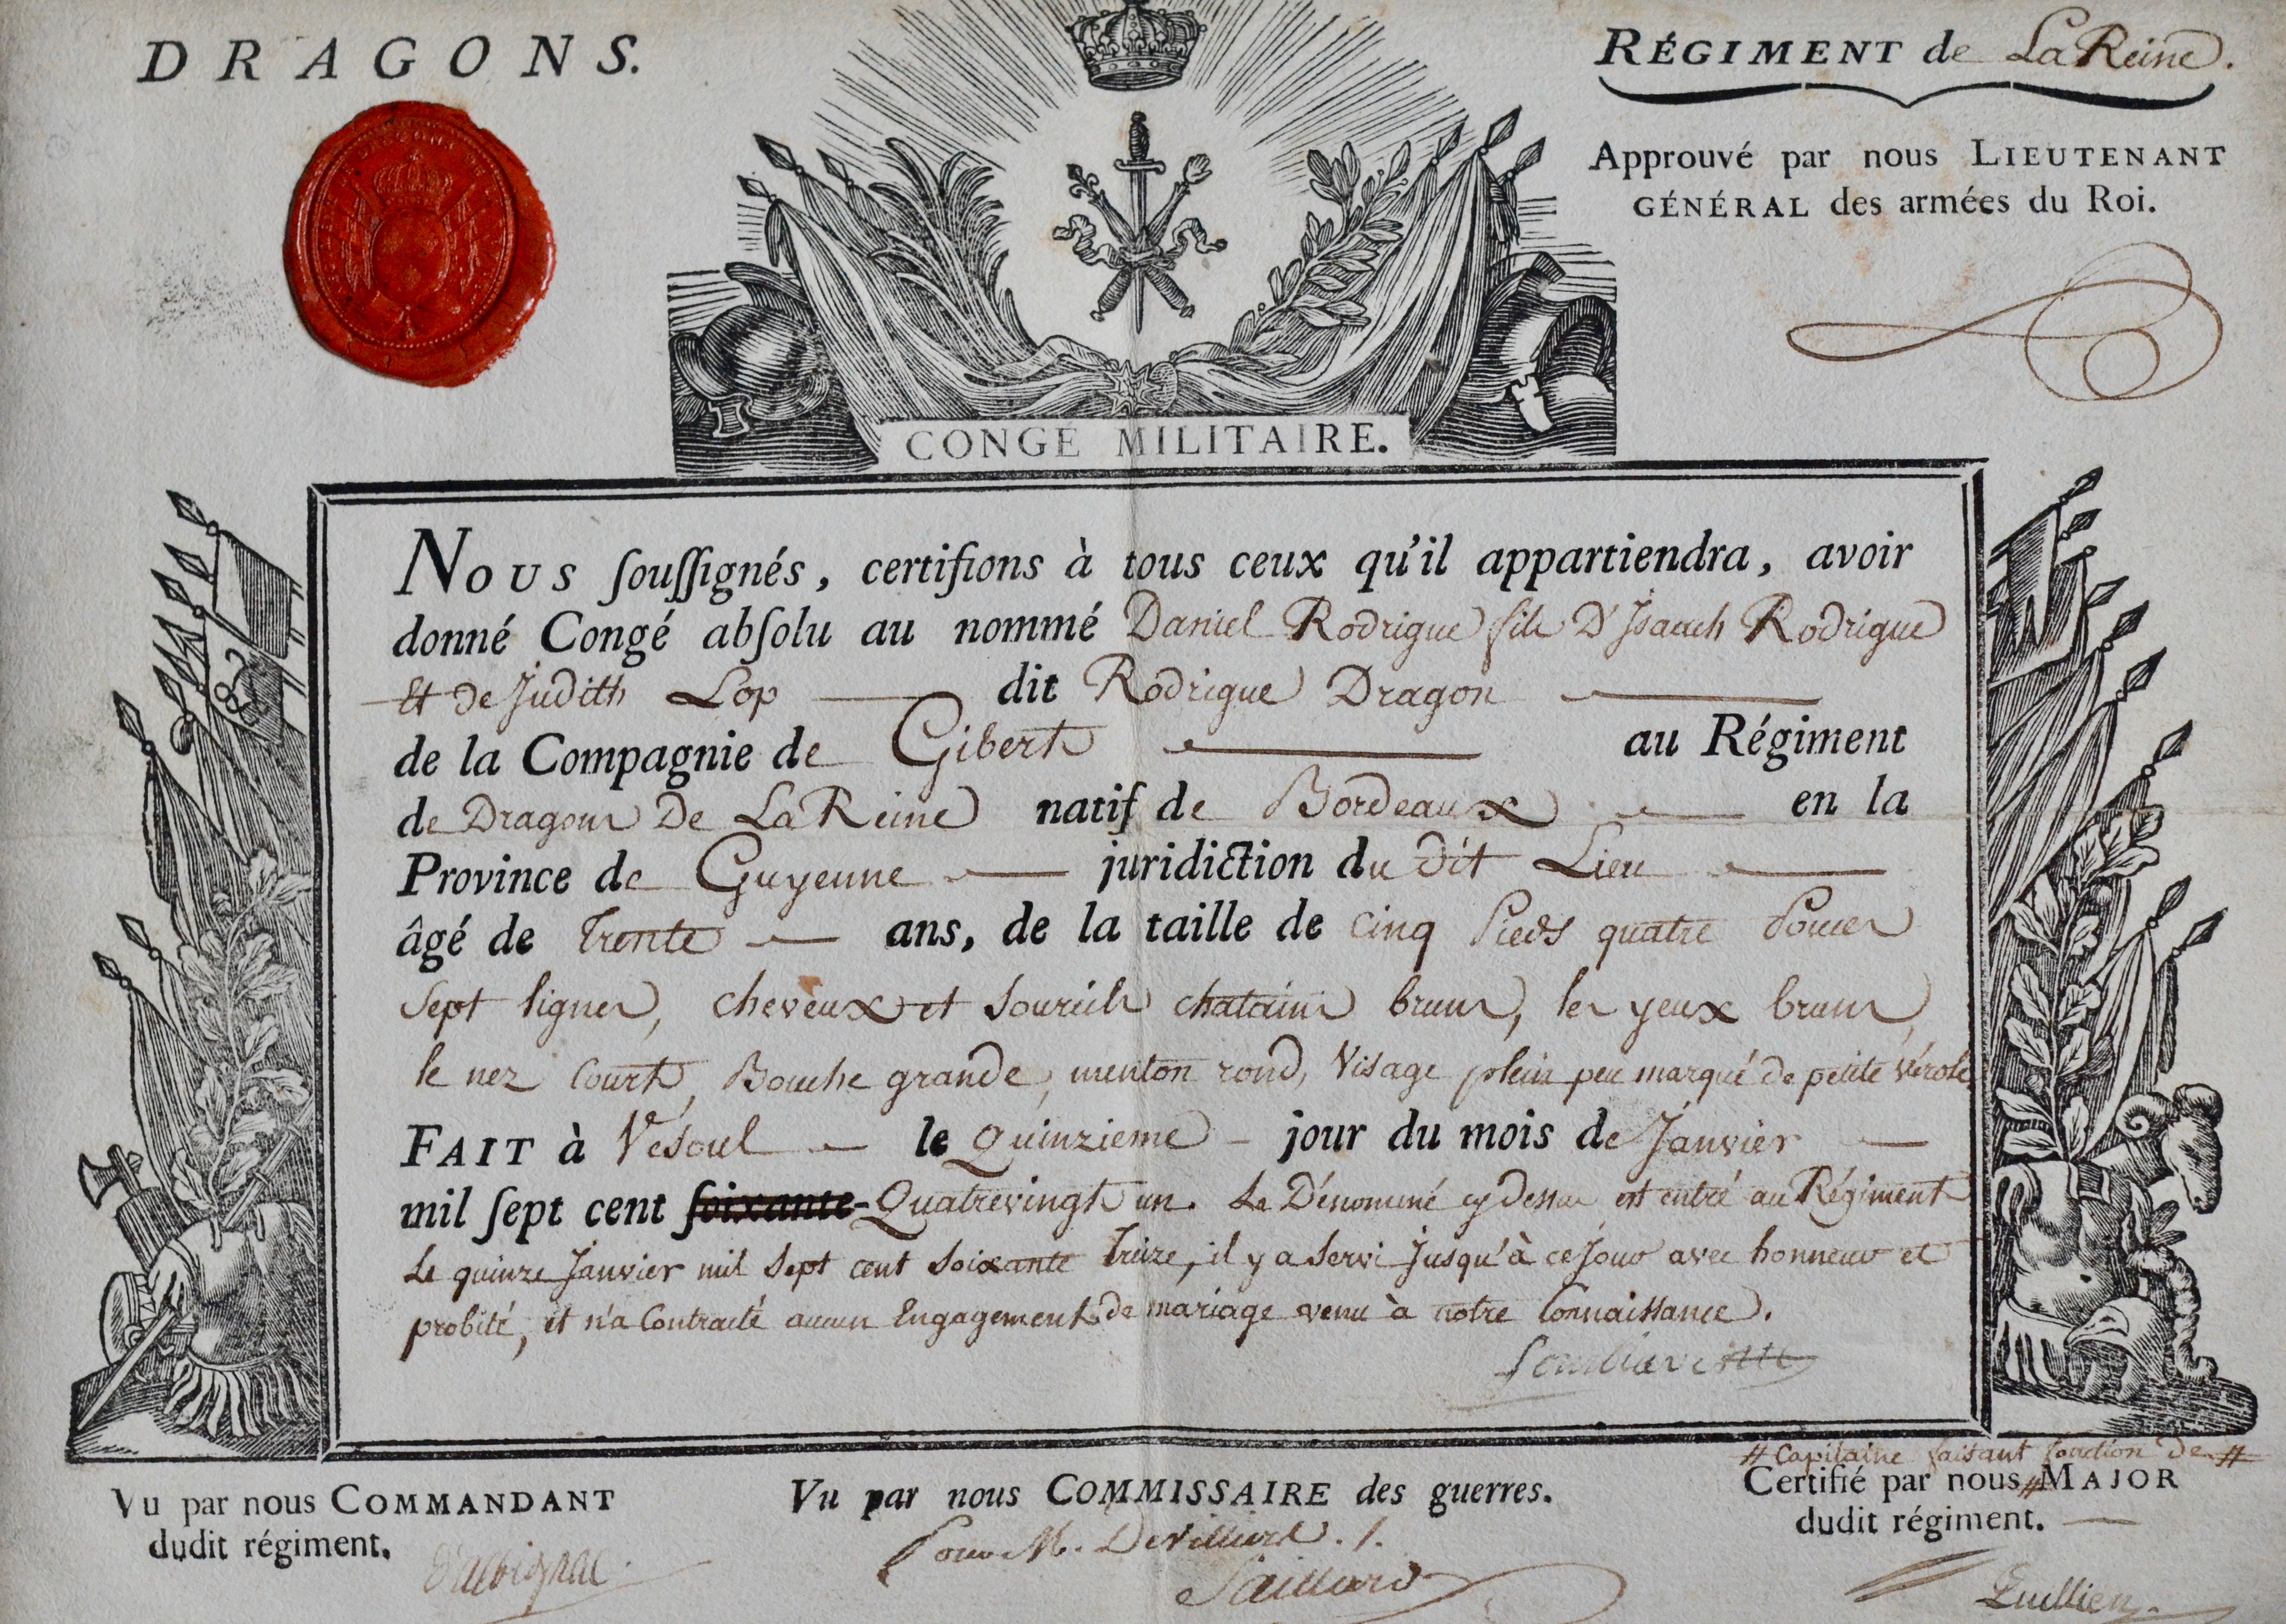 DRAGONS.
RÉGIMENT de La Reine.
Approuvé par nous LIEUTENANT
GÉNÉRAL des armées du Roi.
CONGÉ MILITAIRE.
Nous ſouſſignés, certifions à tous ceux qu'il appartiendra, avoir
donné Congé abſolu au nommé Daniel Rodrigue fils D'Isaach Rodrigue
Et de Judith Lop dit Rodrigue Dragon
de la Compagnie de Gibert au Régiment
de Dragons De La Reine natif de Bordeaux en la
Province de Guyenne juridiction du dit Lieu
âgé de trente ans, de la taille de cinq Pieds quatre Pouces
sept lignes, cheveux et sourcils chatains bruns, les yeux bruns,
le nez court, Bouche grande, menton rond, Visage plein peu marqué de petite Vérole
FAIT à Vesoul le Quinzieme jour du mois de Janvier
mil ſept cent ſoixante-Quatrevingt un. Le Dénommé cy dessus est entré au Régiment
Le quinze Janvier mil sept cent soixante treize, il y a servi jusqu'à ce jour avec honneur et
probité, et n'a contracté aucun Engagement de mariage venu à notre Connaissance.
# Capitaine faisant fonction de #
Vu par nous COMMANDANT
dudit régiment.
d'albignac
Vu par nous COMMISSAIRE des guerres.
Pour M. De Villiers
Saillard
Certifié par nous # MAJOR
dudit régiment.